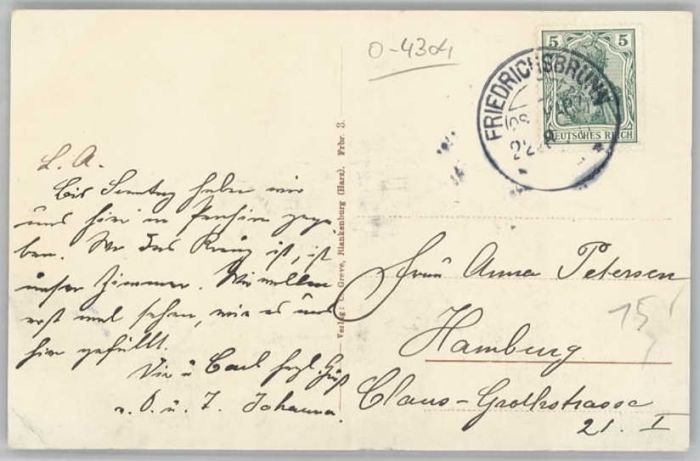 0-4304
5 5
DEUTSCHES REICH
FRIEDRICHSBRUNN
L. A.
Bis Sonntag haben wir
uns hier in Pension gege-
ben. Wo das Kreuz ist, ist
unser Zimmer. Wir wollen
erst mal sehen, wie es uns
hier gefällt.
Dir u. Carl herzl. Grüß
v. O. u. T. Johanna.
Verlag: C. Greve, Blankenburg (Harz). Frbr. 3.
Frau Anna Petersen
Hamburg
Claus-Grothstrasse
21. I
15